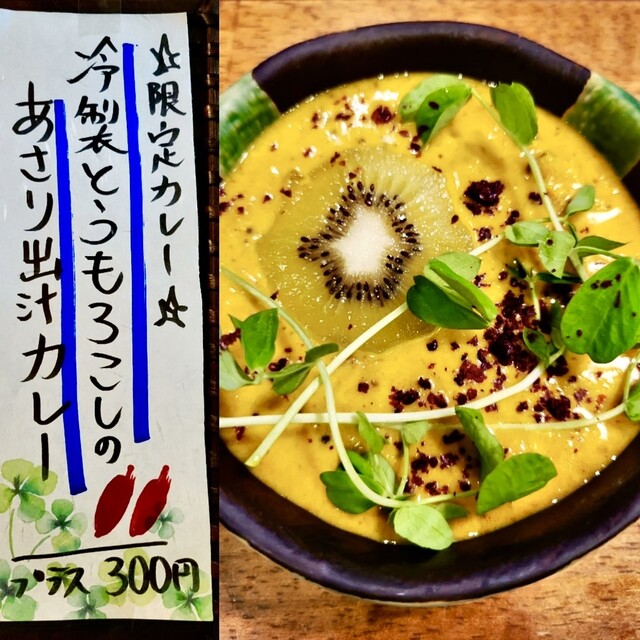 ☆限定カレー☆
冷製とうもろこしの
あさり出汁カレー
プラス 300円